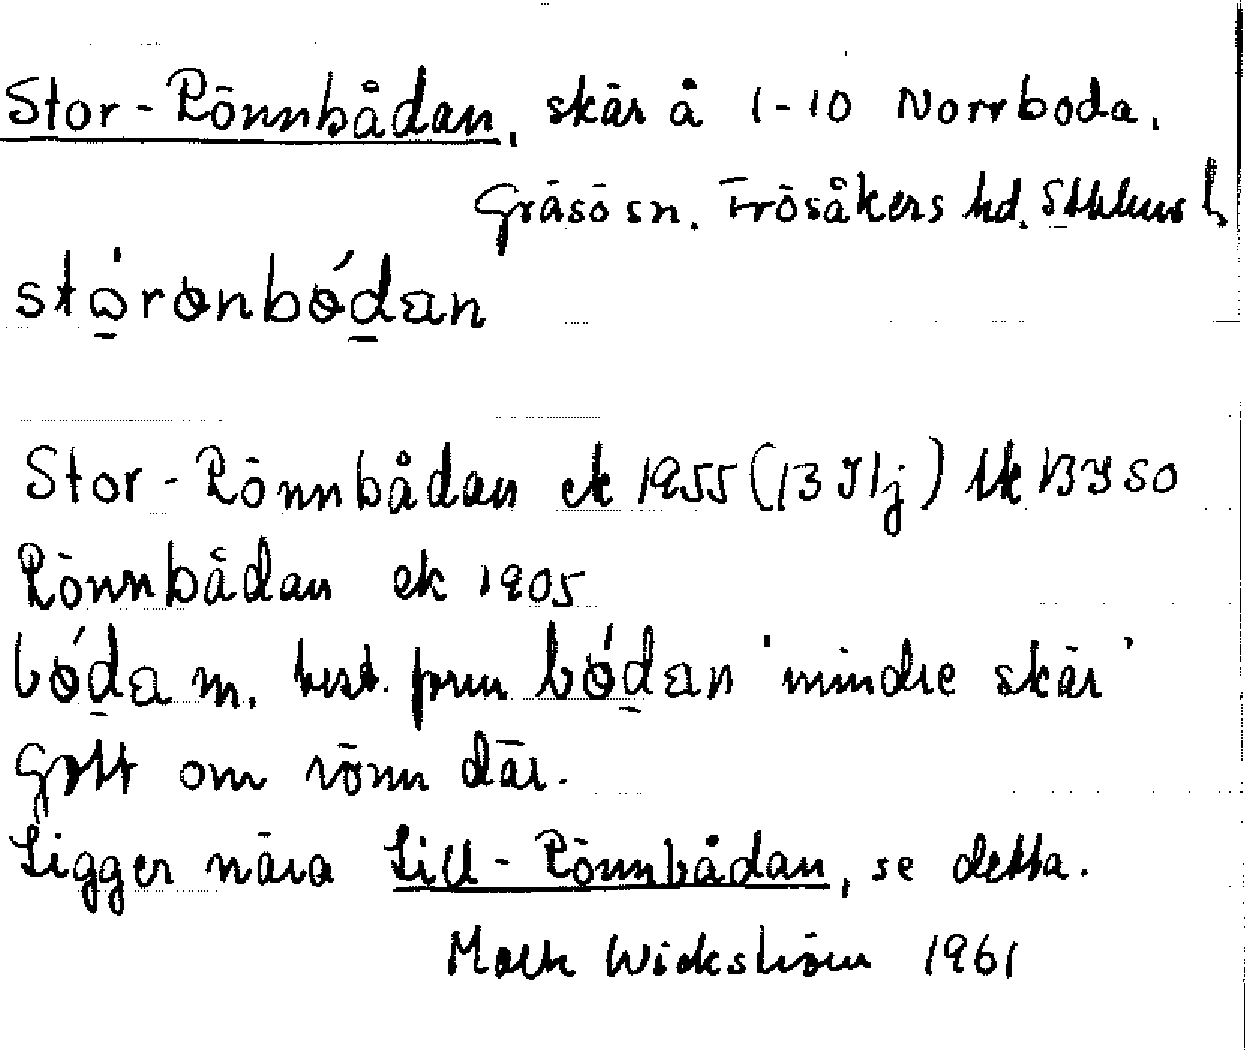 Stor-Rönnbådan, skär å 1-10 Norrboda.
Gräsö sn. Frösåkers hd. Sthlms l.
Stor-Rönnbådan ek 1955 (13 I 1j)
Rönnbådan ek 1905
m. best. form 'mindre skär'
Gott om rönn där.
Ligger nära Lill-Rönnbådan, se detta.
Wickström 1961